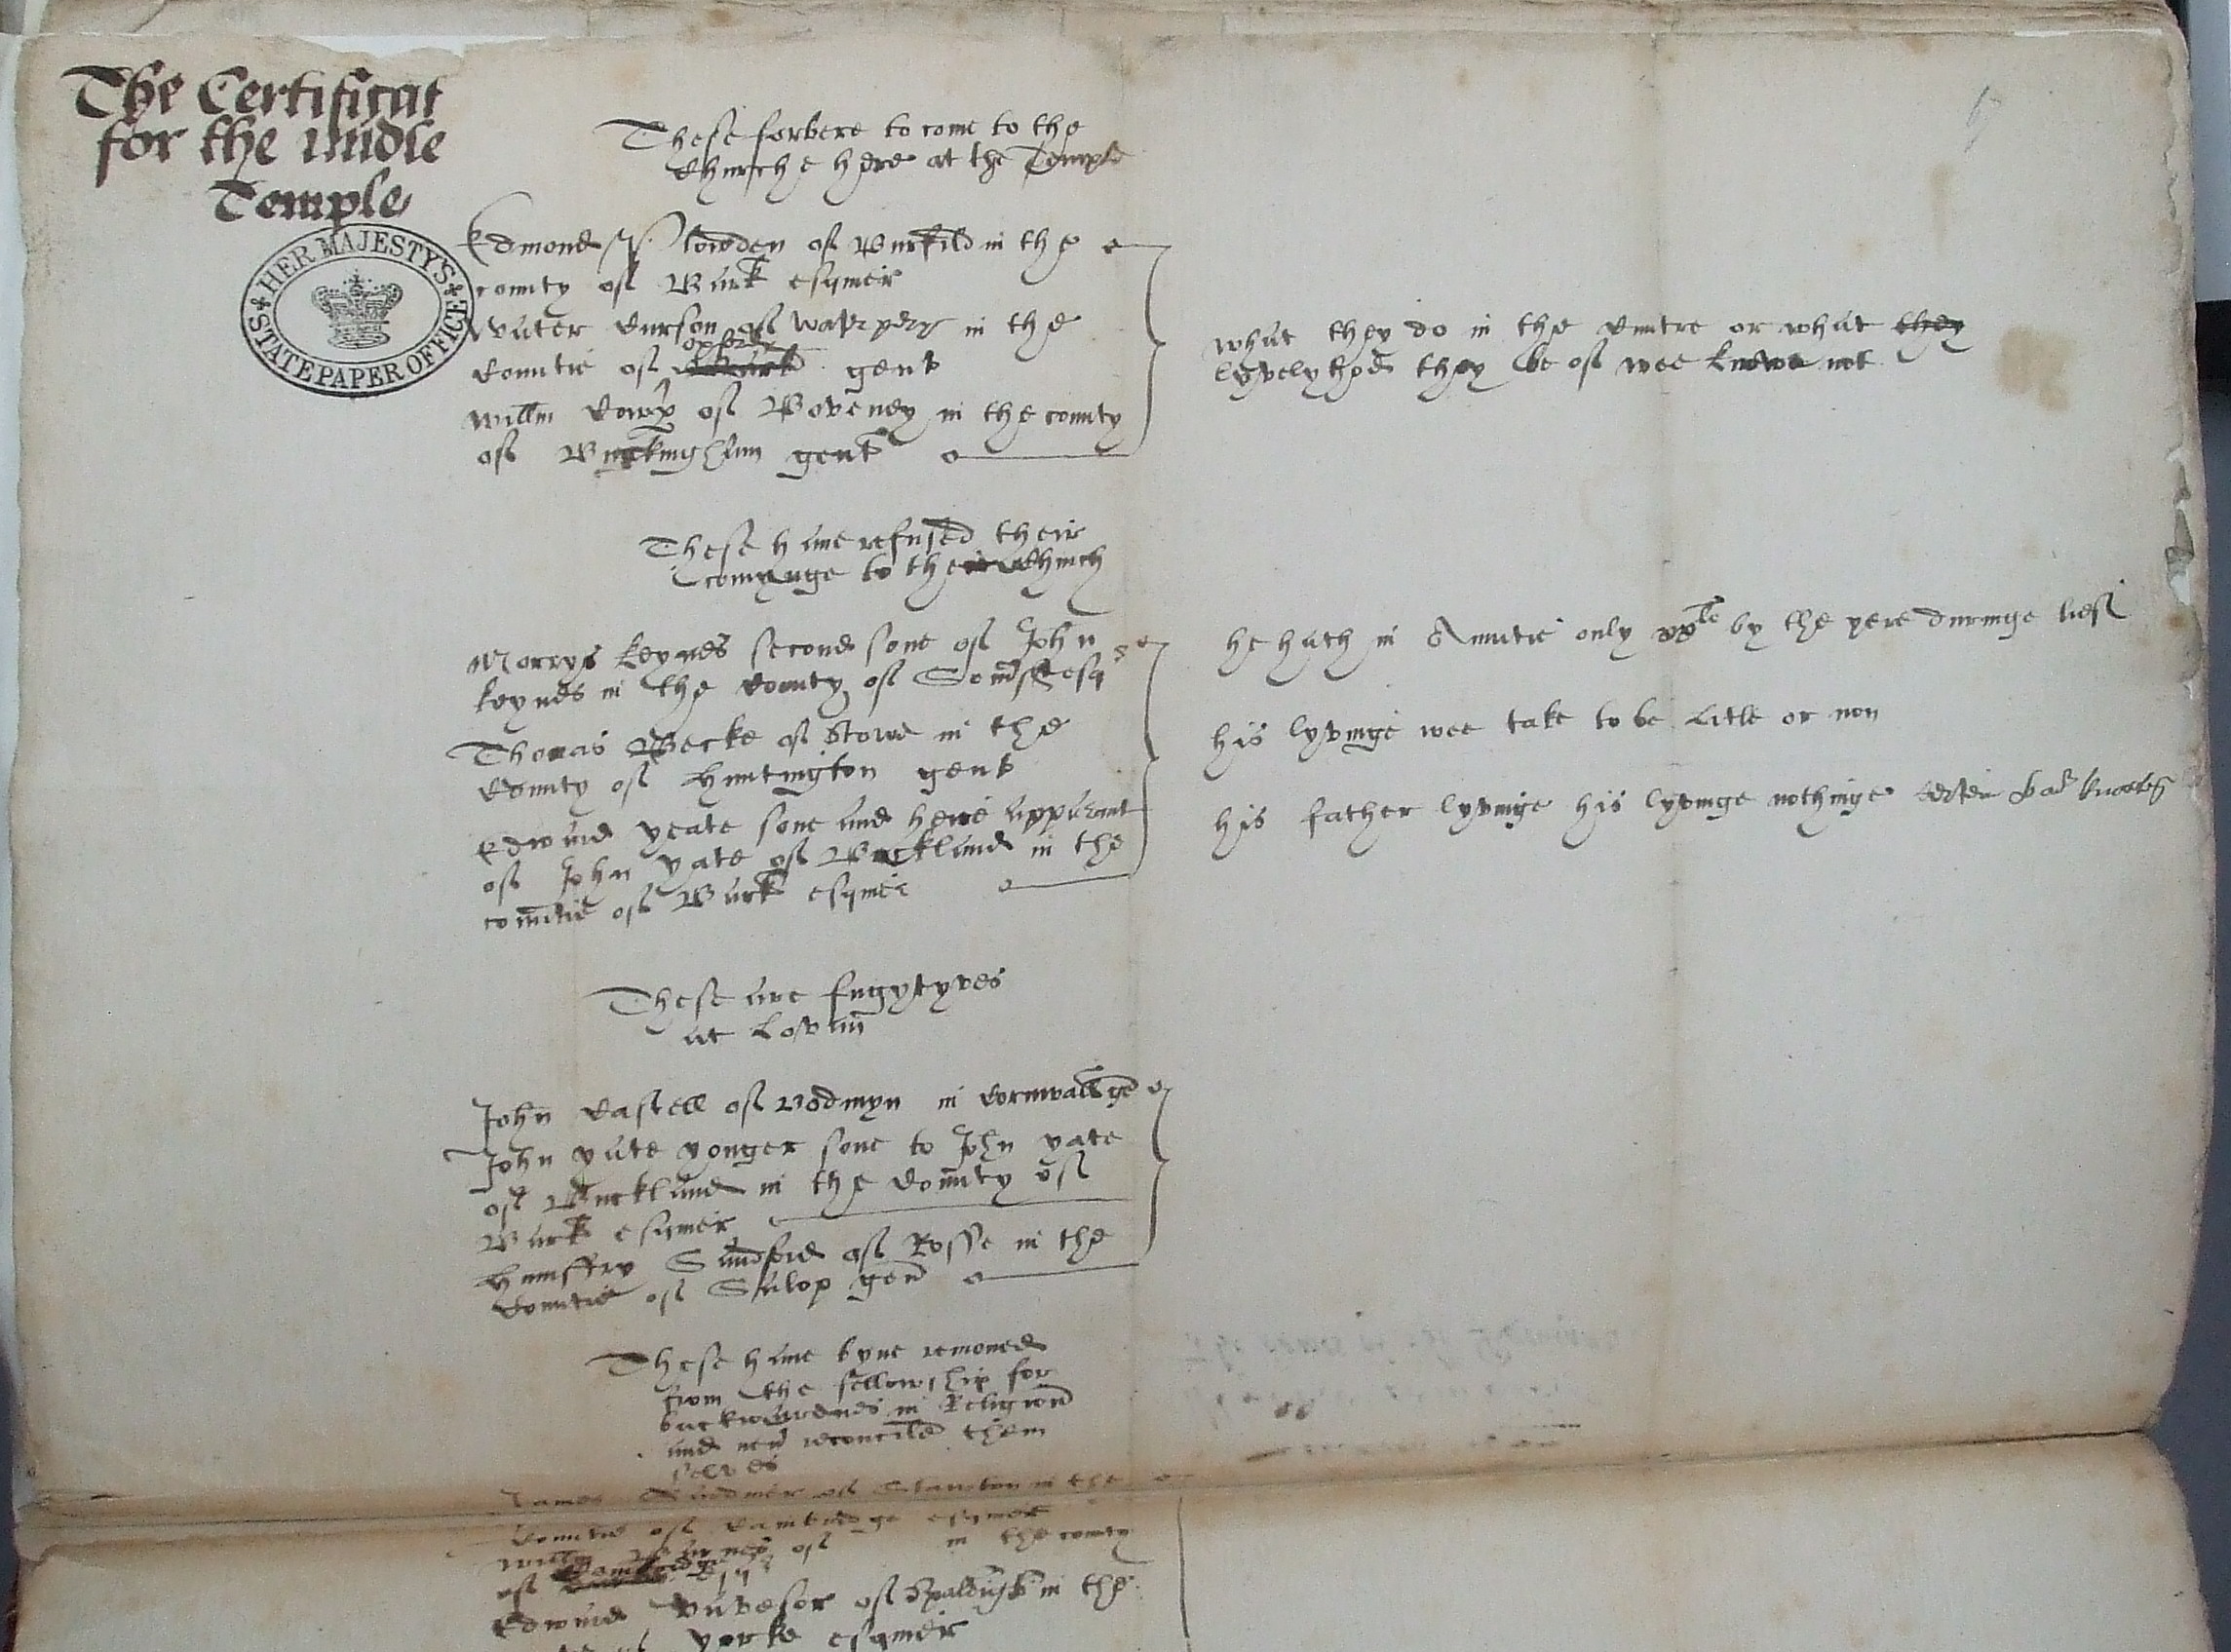 The Certificat
for the midle
Temple
HER MAJESTY'S
STATE PAPER OFFICE
67
These forbere to come to the
Churche here at the Temple
Edmond Plowden of Burfild in the
county of Bark esquier
Walter Curson of Waterpery in the
Countie of Bark oxford gent
Willm of Boveney in the county
of Buckingham gent
what they do in the cuntre or what they
lyvelyhod they be of wee knowe not
These have refused their
comynge to their Church
Morrys keynes second sone of John
keynes in the County of Somerset esq
he hath in Anutie only xx by the yere duringe lief
Thomas Becke of Stowe in the
County of Huntington gent
his lyvinge wee take to be Litle or non
Edward yeate sone and heire apparant
of John yate of Buckland in the
countie of Bark esquier
his father lyvinge his lyvinge nothinge
These are fugytyves
at Lovain
John Castell of Bodmyn in Cornwall gen
John yate yonger sone to John yate
of Buckland in the County of
Bark esquier
Humffry Sandford of Rosse in the
Countie of Salop gen
These have byne removed
from the fellowship for
backwardnes in Religion
and nevr reconciled them
selves
James of in the
Countie of Cambridge esquier
Willm of in the county
of esq
Edward Vavesor of Spaldingt in the
of yorke esquier